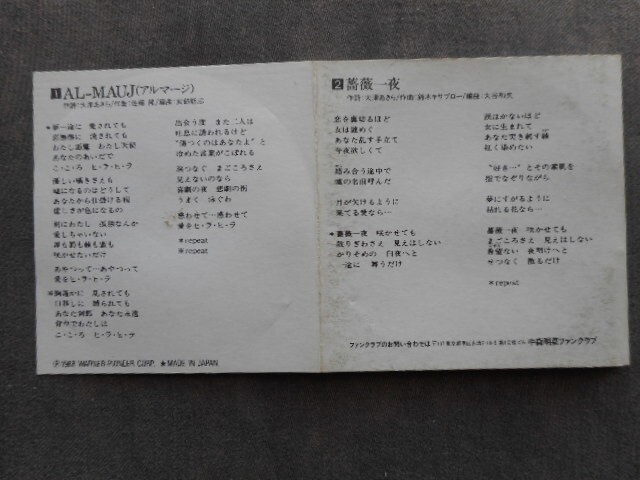 1 AL-MAUJ(アルマージ)
作詩/大津あきら/作曲/佐藤 隆/編曲/武部聡志
※夢一途に 愛されても
わたし悪魔 わたし天使
あなたのあいだで
こ・こ・ろ ヒ・ラ・ヒ・ラ
優しい囁きさえも
嘘になるのはどうして
あなたから仕掛ける恋
哀しさが色になるの
別にわたし 孤独なんか
愛しちゃいない
罪も罰も棘も蜜も
咲かせないだけ
あやつって―あやつって
愛をヒ・ラ・ヒ・ラ
※胸遥かに 乱されても
口移しに 縛られても
あなた刹那 あなた永遠
背中でわたしは
こ・こ・ろ ヒ・ラ・ヒ・ラ
出会う度 また二人は
吐息に誘われるけど
“傷つくのはあなたよ”と
冷めた言葉がこぼれる
儚つなぐ まごころさえ
見えないのなら
喜劇の夜 悲劇の街
うまく 泳ぐわ
惑わせて―惑わせて
愛をヒ・ラ・ヒ・ラ
※repeat
※repeat
Ⓟ1988 WARNER-PIONEER CORP. ★MADE IN JAPAN
2 薔薇一夜
作詩/大津あきら/作曲/鈴木キサブロー/編曲/
恋を裏切るほど
女は謎めく
あなた乱す手立て
今夜欲しくて
絡み合う途中で
嘘の名前呼んだ
月が欠けるように
果てる愛なら…
※薔薇一夜 咲かせても
散りぎわさえ 見えはしない
かりそめの 白夜へと
一途に 舞うだけ
涙はかないほど
女に生まれて
あなた突き刺す棘
紅く染めたい
指でなぞりながら
夢にすがるように
枯れる花なら…
薔薇一夜 咲かせても
まごころさえ 見えはしない
希望ない 夜明けへと
せつなく 散るだけ
※repeat
ファンクラブのお問い合わせは 中森明菜ファンクラブ